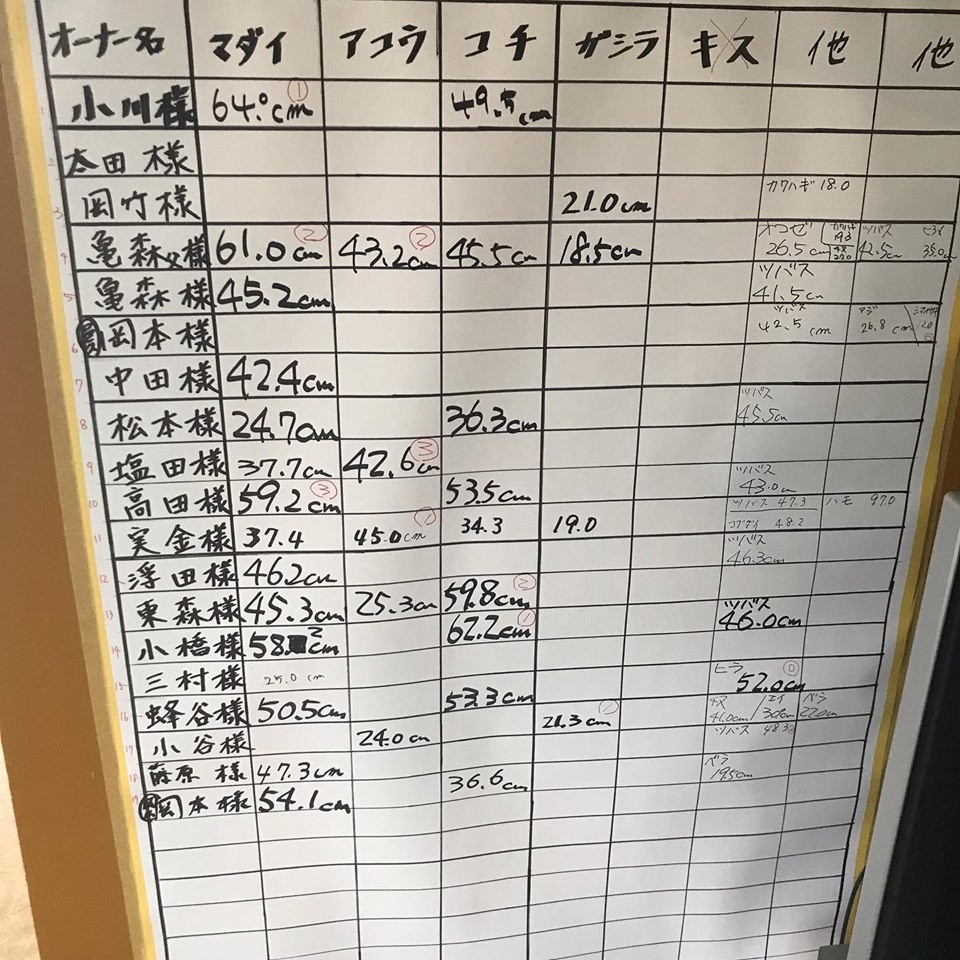 オーナー名 マダイ アコウ コチ ガシラ キス 他 他
1 小川様 64.0cm ① 49.5cm
2 太田様
3 岡竹様 21.0cm カワハギ 18.0
4 亀森父様 61.0cm ② 43.2cm ② 45.5cm 18.5cm オコゼ 26.5cm ツバス 42.5cm 35.0cm
5 亀森様 45.2cm ツバス 41.5cm
6 岡本様 ツバス 42.5cm アジ 26.8cm
7 中田様 42.4cm
8 松本様 24.7cm 36.3cm ツバス 45.5cm
9 塩田様 37.7cm 42.6cm ③ ツバス 43.0cm
10 高田様 59.2cm ③ 53.5cm ツバス 47.3 コブダイ 48.2 ハモ 97.0
11 実金様 37.4 45.0cm ① 34.3 19.0 ツバス 46.3cm
12 浮田様 46.2cm
13 東森様 45.3cm 25.3cm 59.8cm ② ツバス 46.0cm
14 小橋様 58.2cm 62.2cm ①
15 三村様 25.0cm ヒラ 52.0cm
16 蜂谷様 50.5cm 53.3cm 21.3cm ① チヌ 41.0cm エイ 30cm ベラ 22.0cm
17 小谷様 24.0cm ツバス 48.3
18 藤原様 47.3cm 36.6cm ベラ 19.5cm
19 岡本様 54.1cm